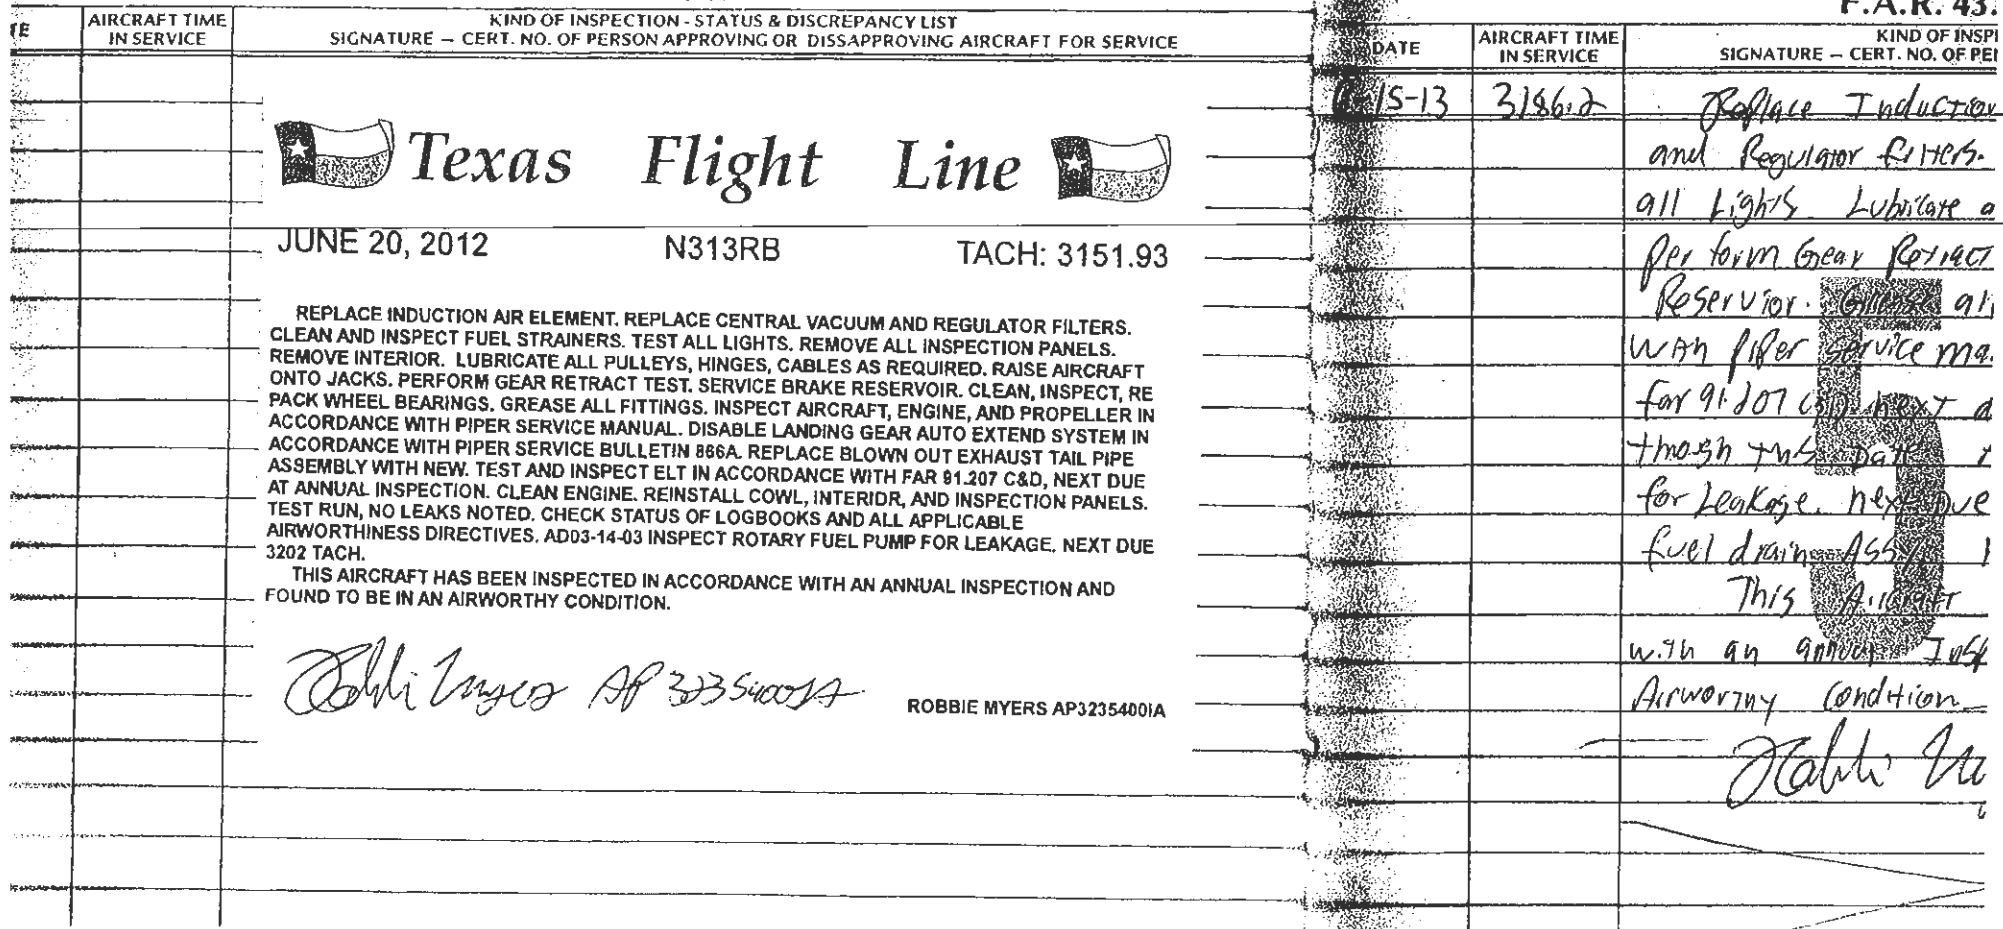 TE
AIRCRAFT TIME
IN SERVICE
KIND OF INSPECTION - STATUS & DISCREPANCY LIST
SIGNATURE — CERT. NO. OF PERSON APPROVING OR DISSAPPROVING AIRCRAFT FOR SERVICE
Texas Flight Line
JUNE 20, 2012 N313RB TACH: 3151.93
REPLACE INDUCTION AIR ELEMENT. REPLACE CENTRAL VACUUM AND REGULATOR FILTERS.
CLEAN AND INSPECT FUEL STRAINERS. TEST ALL LIGHTS. REMOVE ALL INSPECTION PANELS.
REMOVE INTERIOR. LUBRICATE ALL PULLEYS, HINGES, CABLES AS REQUIRED. RAISE AIRCRAFT
ONTO JACKS. PERFORM GEAR RETRACT TEST. SERVICE BRAKE RESERVOIR. CLEAN, INSPECT, RE
PACK WHEEL BEARINGS. GREASE ALL FITTINGS. INSPECT AIRCRAFT, ENGINE, AND PROPELLER IN
ACCORDANCE WITH PIPER SERVICE MANUAL. DISABLE LANDING GEAR AUTO EXTEND SYSTEM IN
ACCORDANCE WITH PIPER SERVICE BULLETIN 866A. REPLACE BLOWN OUT EXHAUST TAIL PIPE
ASSEMBLY WITH NEW. TEST AND INSPECT ELT IN ACCORDANCE WITH FAR 91.207 C&D, NEXT DUE
AT ANNUAL INSPECTION. CLEAN ENGINE. REINSTALL COWL, INTERIOR, AND INSPECTION PANELS.
TEST RUN, NO LEAKS NOTED. CHECK STATUS OF LOGBOOKS AND ALL APPLICABLE
AIRWORTHINESS DIRECTIVES. AD03-14-03 INSPECT ROTARY FUEL PUMP FOR LEAKAGE. NEXT DUE
3202 TACH.
THIS AIRCRAFT HAS BEEN INSPECTED IN ACCORDANCE WITH AN ANNUAL INSPECTION AND
FOUND TO BE IN AN AIRWORTHY CONDITION.
Robbie Myers AP 3235400IA
ROBBIE MYERS AP3235400IA
F.A.R. 43.
DATE
AIRCRAFT TIME
IN SERVICE
KIND OF INSPE
SIGNATURE — CERT. NO. OF PER
15-13 3186.2 Replace Induction
and Regulator filters.
all Lights Lubricate a
Perform Gear Retract
Reservior. Grease all
with Piper Service ma
far 91.207 C&D. next d
for Leakage. next Due
fuel drain Assy
This Aircraft
with an annual Insp
Airworthy Condition
Robbie